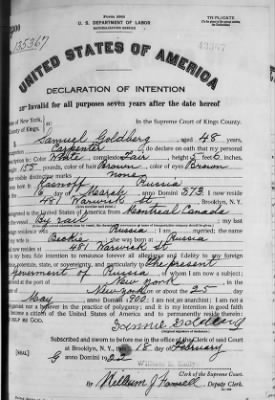 FORM 2203
TRIPLICATE
U. S. DEPARTMENT OF LABOR
NATURALIZATION SERVICE
135367
UNITED STATES OF AMERICA
DECLARATION OF INTENTION
Invalid for all purposes seven years after the date hereof
of New York,
County of Kings,
In the Supreme Court of Kings County.
Samuel Goldberg, aged 48 years,
Carpenter, do declare on oath that my personal
description is: Color White, complexion Fair, height 5 feet 6 inches,
weight 155 pounds, color of hair Brown, color of eyes Brown
visible distinctive marks none
Russia
day of March, anno Domini 873. I now reside
481 Warwick St., Brooklyn, N. Y.
emigrated to the United States of America from Montreal Canada
by rail; my last
Russia; I am married; the name
wife is Beckie; she was born at Russia
and now resides at 481 Warwick St.
is my bona fide intention to renounce forever all allegiance and fidelity to any foreign
potentate, state, or sovereignty, and particularly to The present
Government of Russia, of whom I am now a subject;
arrived at the port of New York, in the
of New York, on or about the 25 day
May, anno Domini 1900; I am not an anarchist; I am not a
polygamist nor a believer in the practice of polygamy; and it is my intention in good faith
to become a citizen of the United States of America and to permanently reside therein:
HELP ME GOD.
Subscribed and sworn to before me in the office of the Clerk of said Court
at Brooklyn, N. Y., this 18 day of February
[SEAL]
anno Domini 1922
Clerk of the Supreme Court.
By William J Farrell, Deputy Clerk.